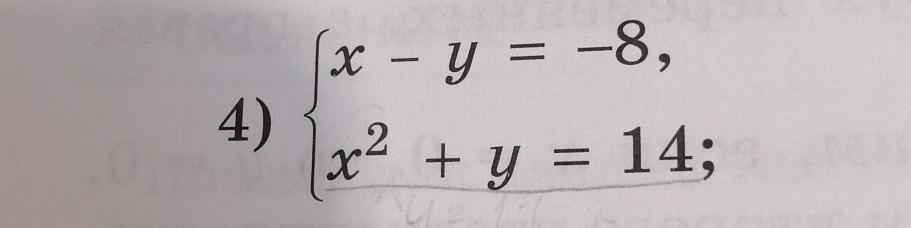 4) { x − y = −8,
x² + y = 14;